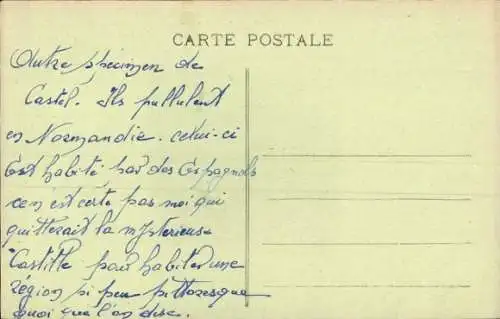 CARTE POSTALE
Autre spécimen de
Castel. Ils pullulent
en Normandie. celui-ci
est habité par des Espagnols
ce n'est certe pas moi qui
quitterait la mysterieuse
Castille pour habiter une
région si peu pittoresque
quoi que l'on dise.